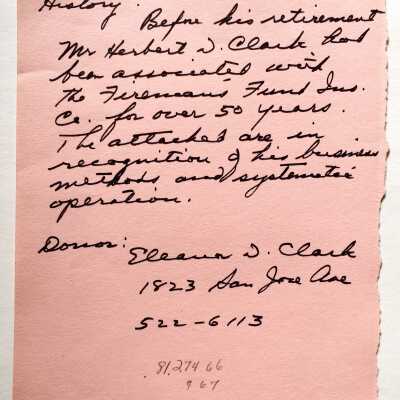 History.
Before his retirement
Mr Herbert D. Clark had
been associated with
the Fireman's Fund Ins.
Co. for over 50 years.
The attached are in
recognition of his business
methods and systematic
operation.
Donor: Eleanor D. Clark
1823 San Jose Ave
522-6113
81.274 66
967